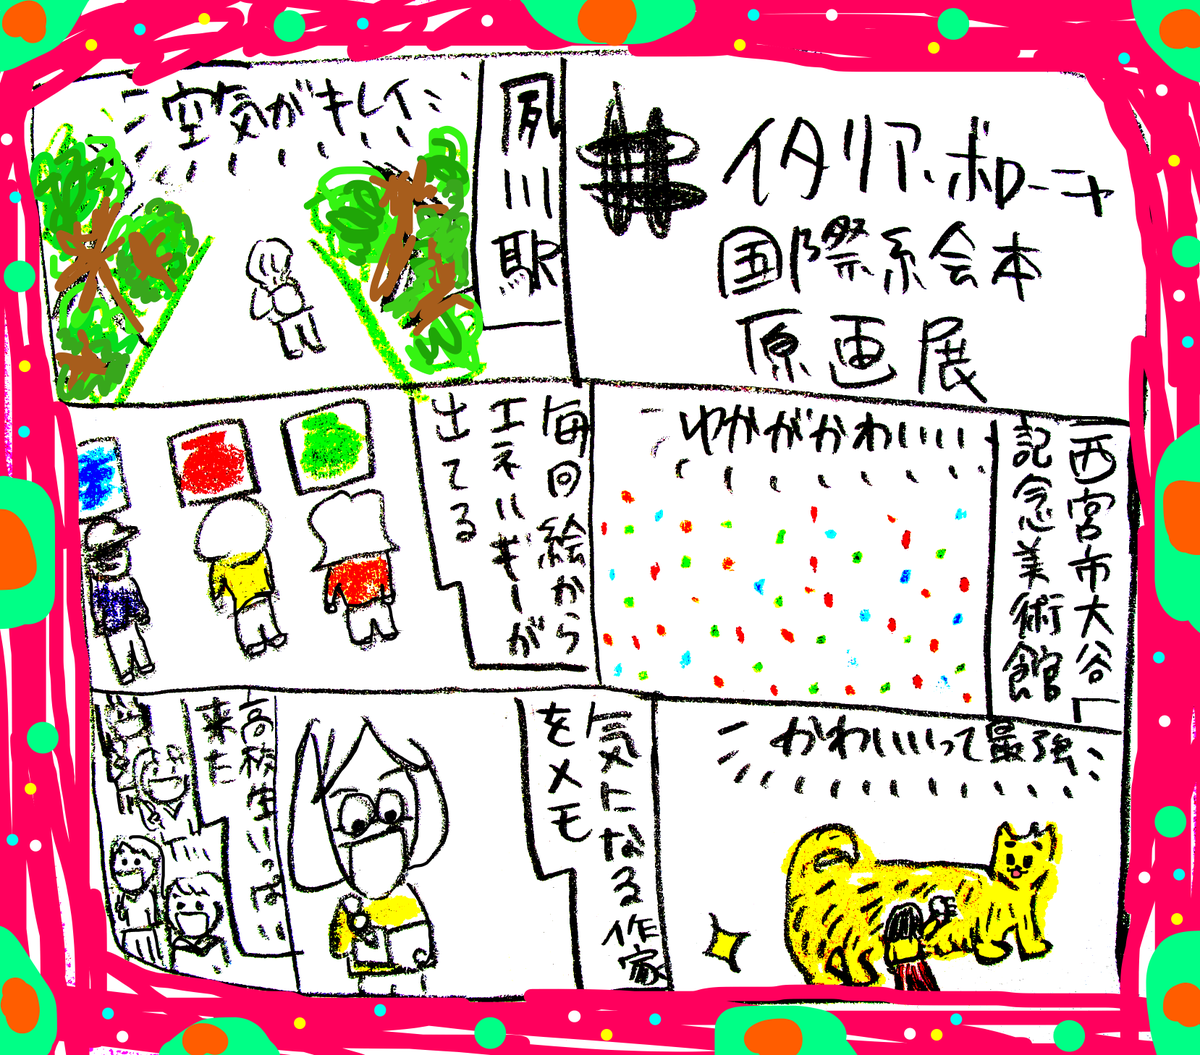 # イタリア・ボローニャ
国際絵本
原画展
夙川駅
空気がキレイ
西宮市大谷
記念美術館
ゆかがかわいい
毎回絵から
エネルギーが
出てる
かわいいって最強
気になる作家
をメモ
高校生いっぱい
来た